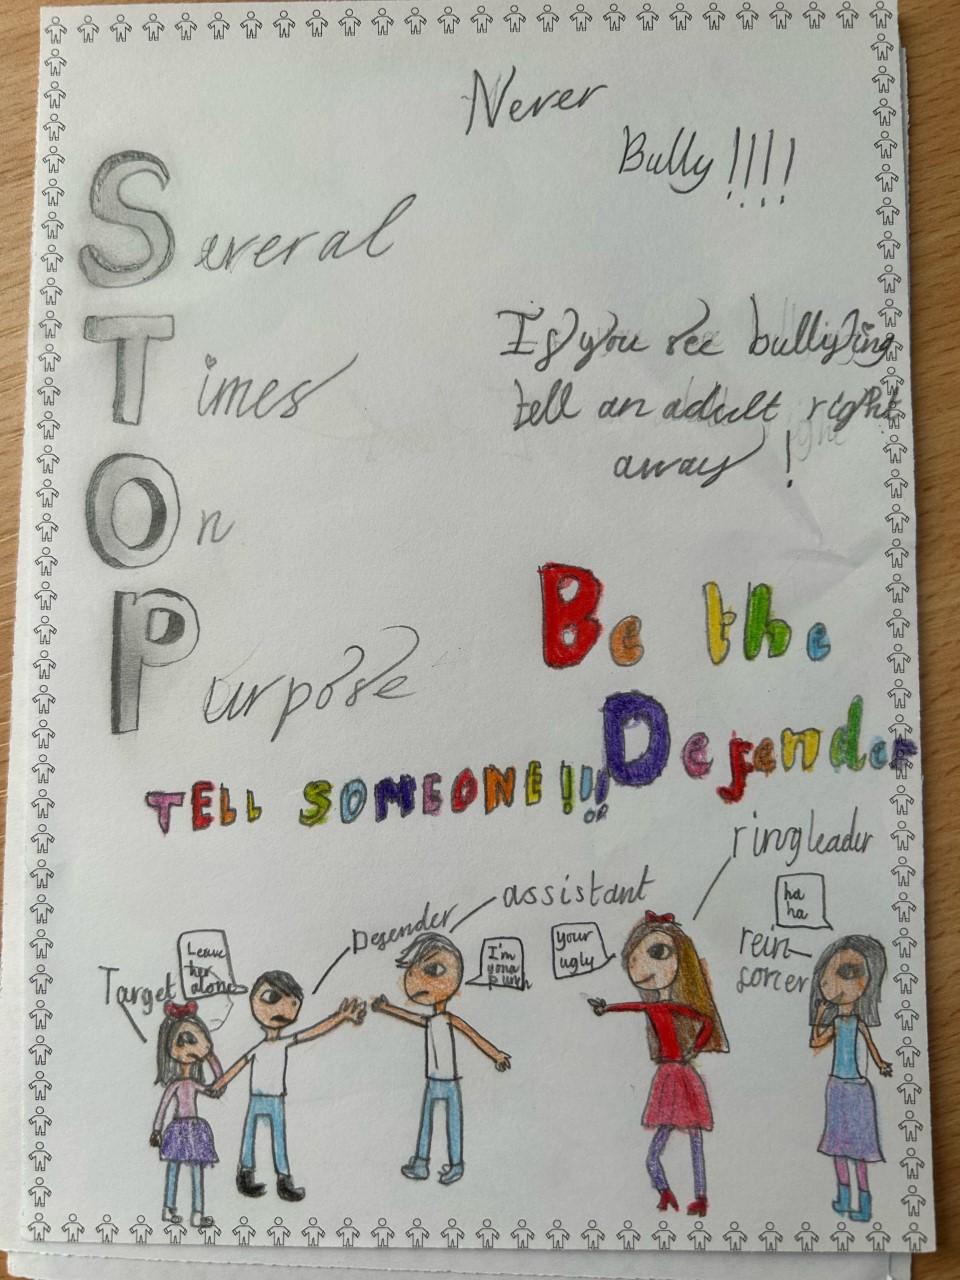 Never
Bully!!!!
Several
Times
On
Purpose
If you see bullying
tell an adult right
away!
Be the
Defender
TELL SOMEONE!!!
or
ringleader
assistant
Defender
Target
rein-
forcer
Leave
her
alone
I'm
gona
punch
Your
ugly
ha
ha